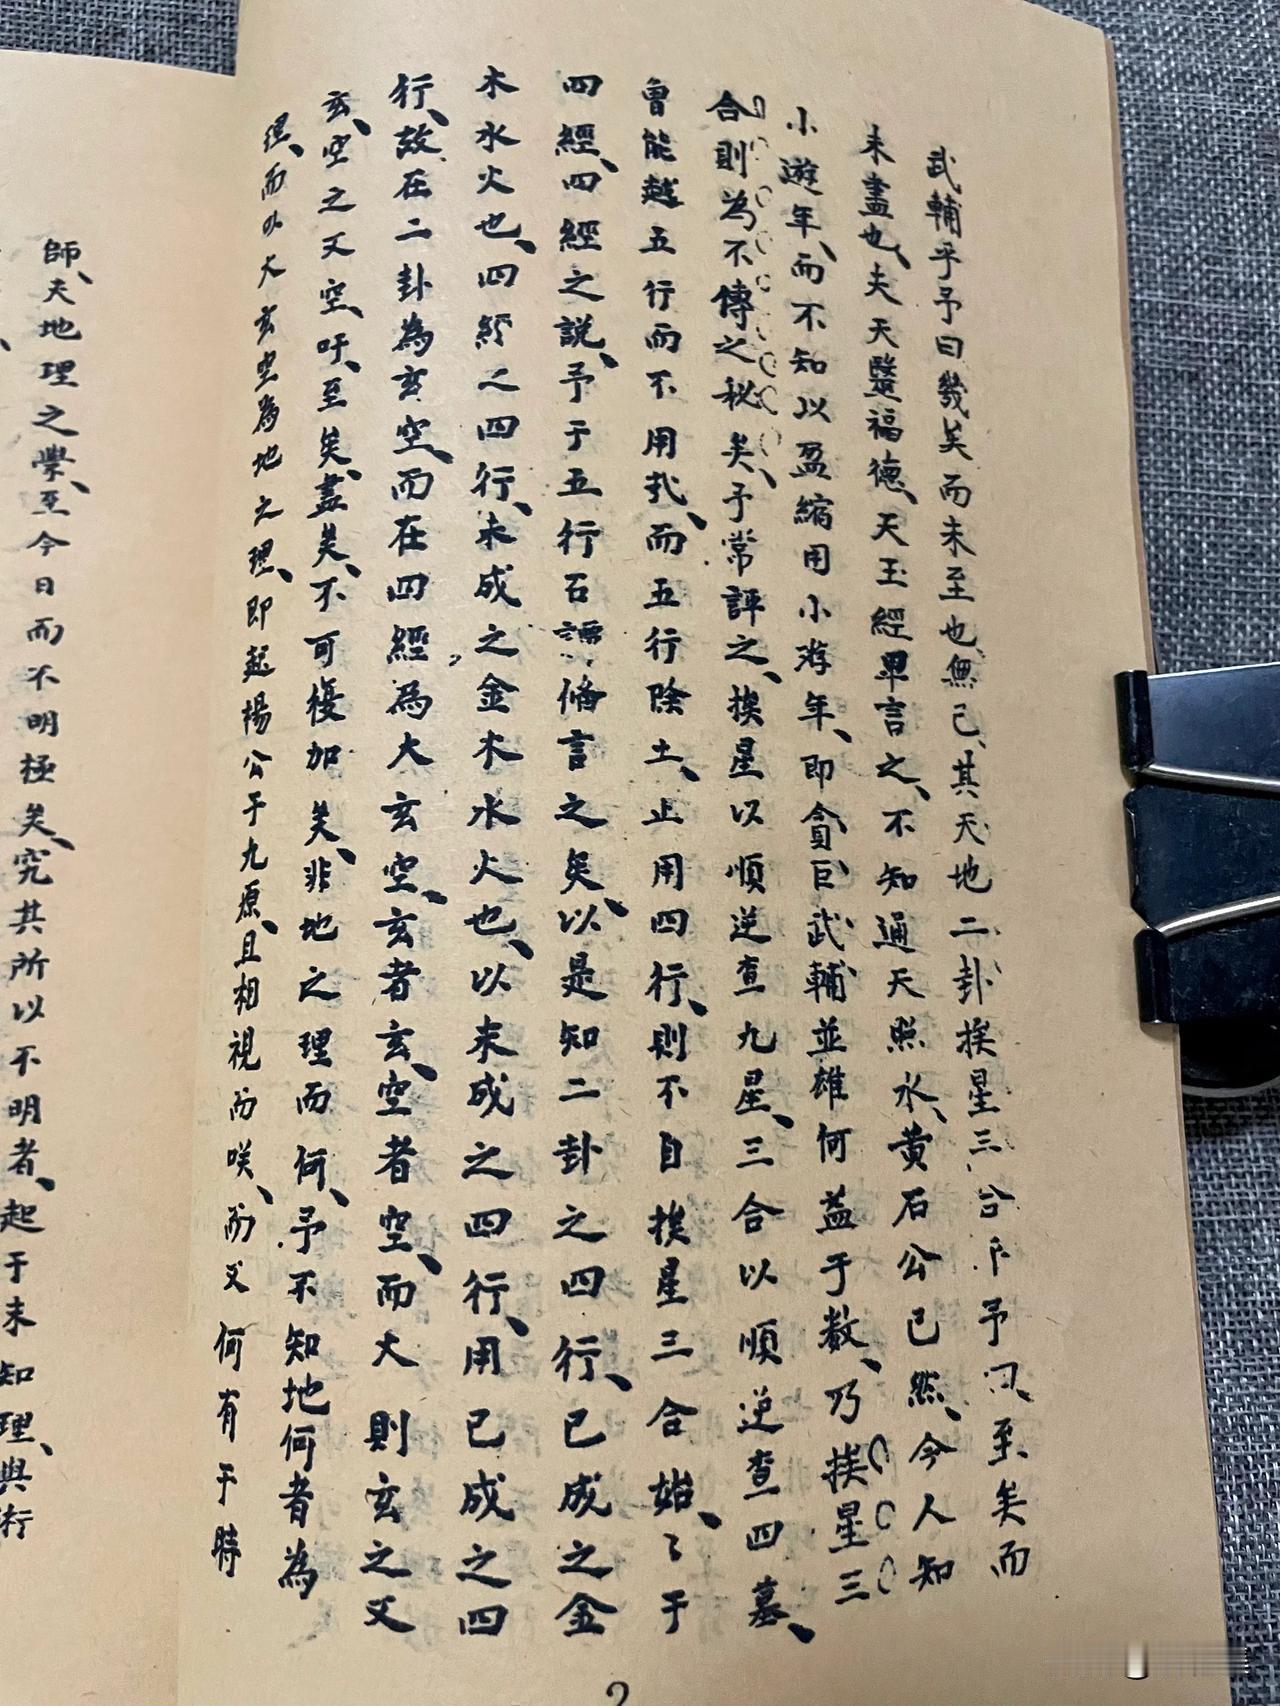 武輔乎予曰幾矣而未至也無已、其天地二卦挨星三合乎予曰、至矣而
未盡也、夫天醫福德、天玉經畢言之、不知通天照水、黄石公已然、今人知
小遊年、而不知以盈縮用小游年、即貪巨武輔並雄何益于数、乃挨星三
合則為不傳之秘矣、予常評之、挨星以順逆查九星、三合以順逆查四墓、
曾能越五行而不用㢤、而五行除土、止用四行、則不自挨星三合始、〻于
四經、四經之說、予于五行石譚備言之矣、以是知二卦之四行、已成之金
木水火也、四經之四行、未成之金木水火也、以未成之四行、用已成之四
行、故在二卦為玄空、而在四經為大玄空、玄者玄、空者空、而大則玄之又
玄、空之又空、吁、至矣、盡矣、不可復加矣、非地之理而何、予不知地何者為
理、而以大玄空為地之理、即起楊公于九原、且相視而咲、而又何有于時
師、夫地理之學、至今日而不明極矣、究其所以不明者、起于未知理、與行
2